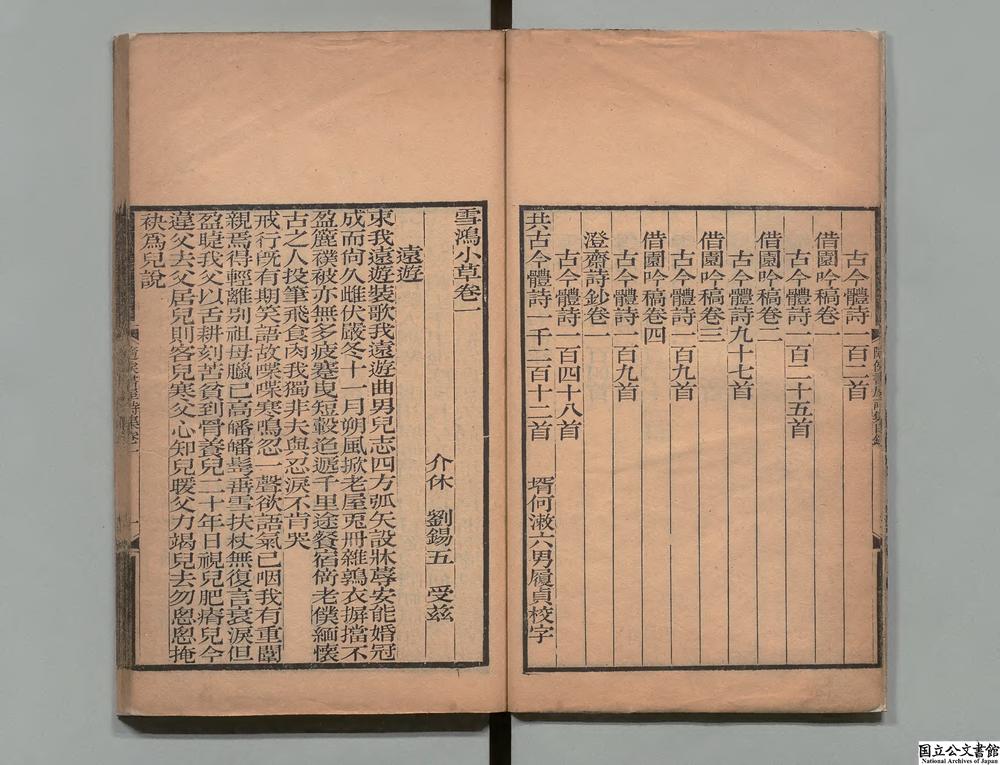 古今體詩一百二首
借園吟稿卷一
古今體詩一百二十五首
借園吟稿卷二
古今體詩九十七首
借園吟稿卷三
古今體詩一百九首
借園吟稿卷四
古今體詩一百九首
澄齋詩鈔卷一
古今體詩一百四十八首
共古今體詩一千二百十二首 壻何漱六男履貞校字
雪鴻小草卷一
介休 劉錫五 受茲
遠遊
束我遠遊裝歌我遠遊曲男兒志四方弧矢設牀蓐安能婚冠
成而尚久雌伏嚴冬十一月朔風掀老屋兎冊雜鶉衣摒擋不
盈簏襆被亦無多疲蹇曳短轂迢遞千里途餐宿倚老僕緬懷
古之人投筆飛食肉我獨非夫與忍淚不肯哭
戒行旣有期笑語故喋喋寒鳴忽一聲欲語氣已咽我有重闈
親焉得輕離別祖母臘已高皤皤髩垂雪扶杖無復言衰淚但
盈睫我父以舌耕刻苦貧到骨養兒二十年日視兒肥瘠兒今
違父去父居兒則客兒寒父心知兒暖父力竭兒去勿悤悤掩
袂爲兒說
国立公文書館
National Archives of Japan